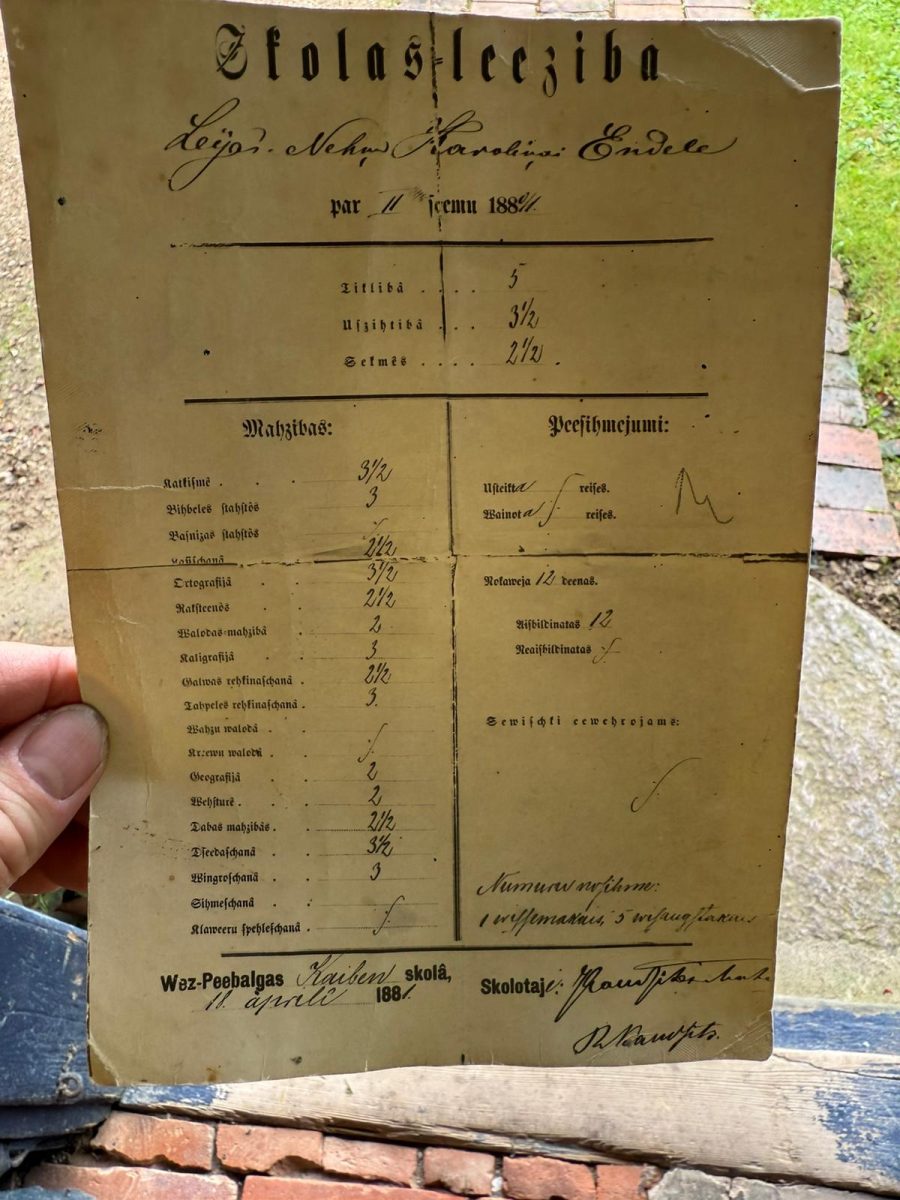 Skolas-leeziba
Leijas-Nehķu Karolinai Endele
par II seemu 1880/1.
Tiklibâ . . . . 5
Uszihtibâ . . . 3½
Sekmês . . . . 2½.
Mahzibas:
Katkismê . . . 3½
Bihbeles stahstôs 3
Basnizas stahstôs
Lasischanâ 2½
Ortografijâ . . 3½
Raksteenôs . . 2½
Walodas-mahzibâ . 2
Kaligrafijâ . . 3
Galwas rehkinaschanâ . 2½
Tahpeles rehkinaschanâ . 3.
Wahzu walodâ .
Kreewu walodâ .
Geografijâ . . 2
Wehsturê . . . 2
Dabas mahzibâs . . 2½
Dseedaschanâ . . 3½
Wingroschanâ . . 3
Sihmeschanâ . .
Klaweeru spehleschanâ .
Peesihmejumi:
Usteikta reises.
Wainota reises.
Nokaweja 12 deenas.
Aisbildinatas 12
Neaisbildinatas
Sewischki eewehrojams:
Numuru nosihme:
1 wissemakais, 5 wisaugstakais
Wez-Peebalgas Kaiben skolâ,
18. aprilî 1881.
Skolotaji:
R Kaudsits.